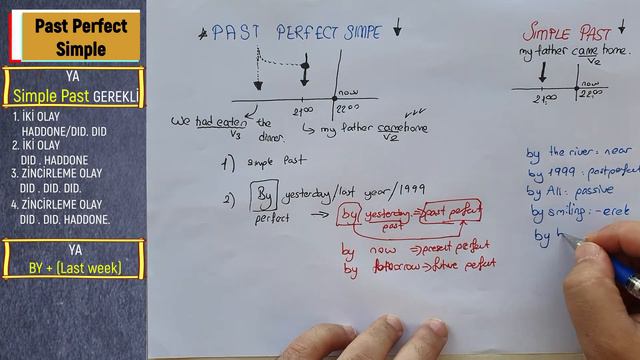 Past Perfect
Simple
YA
Simple Past GEREKLİ
1. İKİ OLAY
HADDONE/DID. DID
2. İKİ OLAY
DID . HADDONE
3. ZİNCİRLEME OLAY
DID . DID. DID.
4. ZİNCİRLEME OLAY
DID . DID. HADDONE.
YA
BY + (Last week)
PAST PERFECT SIMPE
now
21:00 22:00
We had eaten the
V3
dinner.
my father came home
V2
1) simple past
2) By yesterday/last year/1999
perfect
by yesterday past perfect
past
by now present perfect
by tomorrow future perfect
SIMPLE PAST
my father came home.
V2
now
21:00 22:00
by the river: near
by 1999: past perfect
by Ali: passive
by smiling: -erek
by